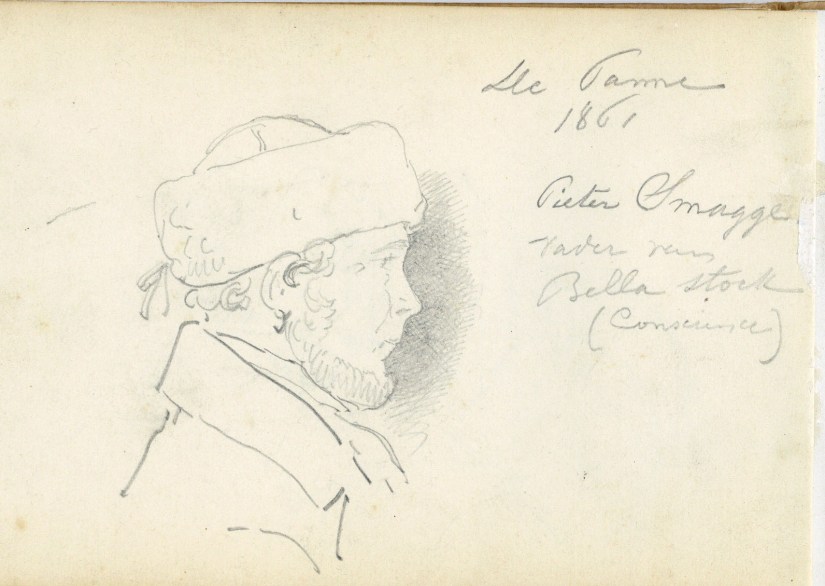 De Panne
1861
Pieter Smagge
Vader van
Bella Stock
(Conscience)